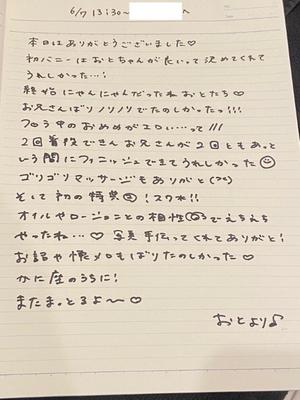 6/7 13:30〜
本日はありがとうございました♡
初バニーはおとちゃんが良いって決めてくれて
うれしかった…!
終始にゃんにゃんだったねおとたち♡
お兄さんばりノリノリでたのしかったッ!!!
フロ中のおめめがエロい…って///
2回着段できんお兄さんが2回ともあっと
いう間にフィニッシュできてうれしかった
ゴリゴリマッサージもありがと
そして初の特典②!スク水!!
オイルやローションとの相性◎でえちえち
やったね…♡ 写真手伝ってくれてありがと!
お話や懐メロもばりたのしかった♡
かに座のうちに!
またまっとるよ〜♡
おとより♪